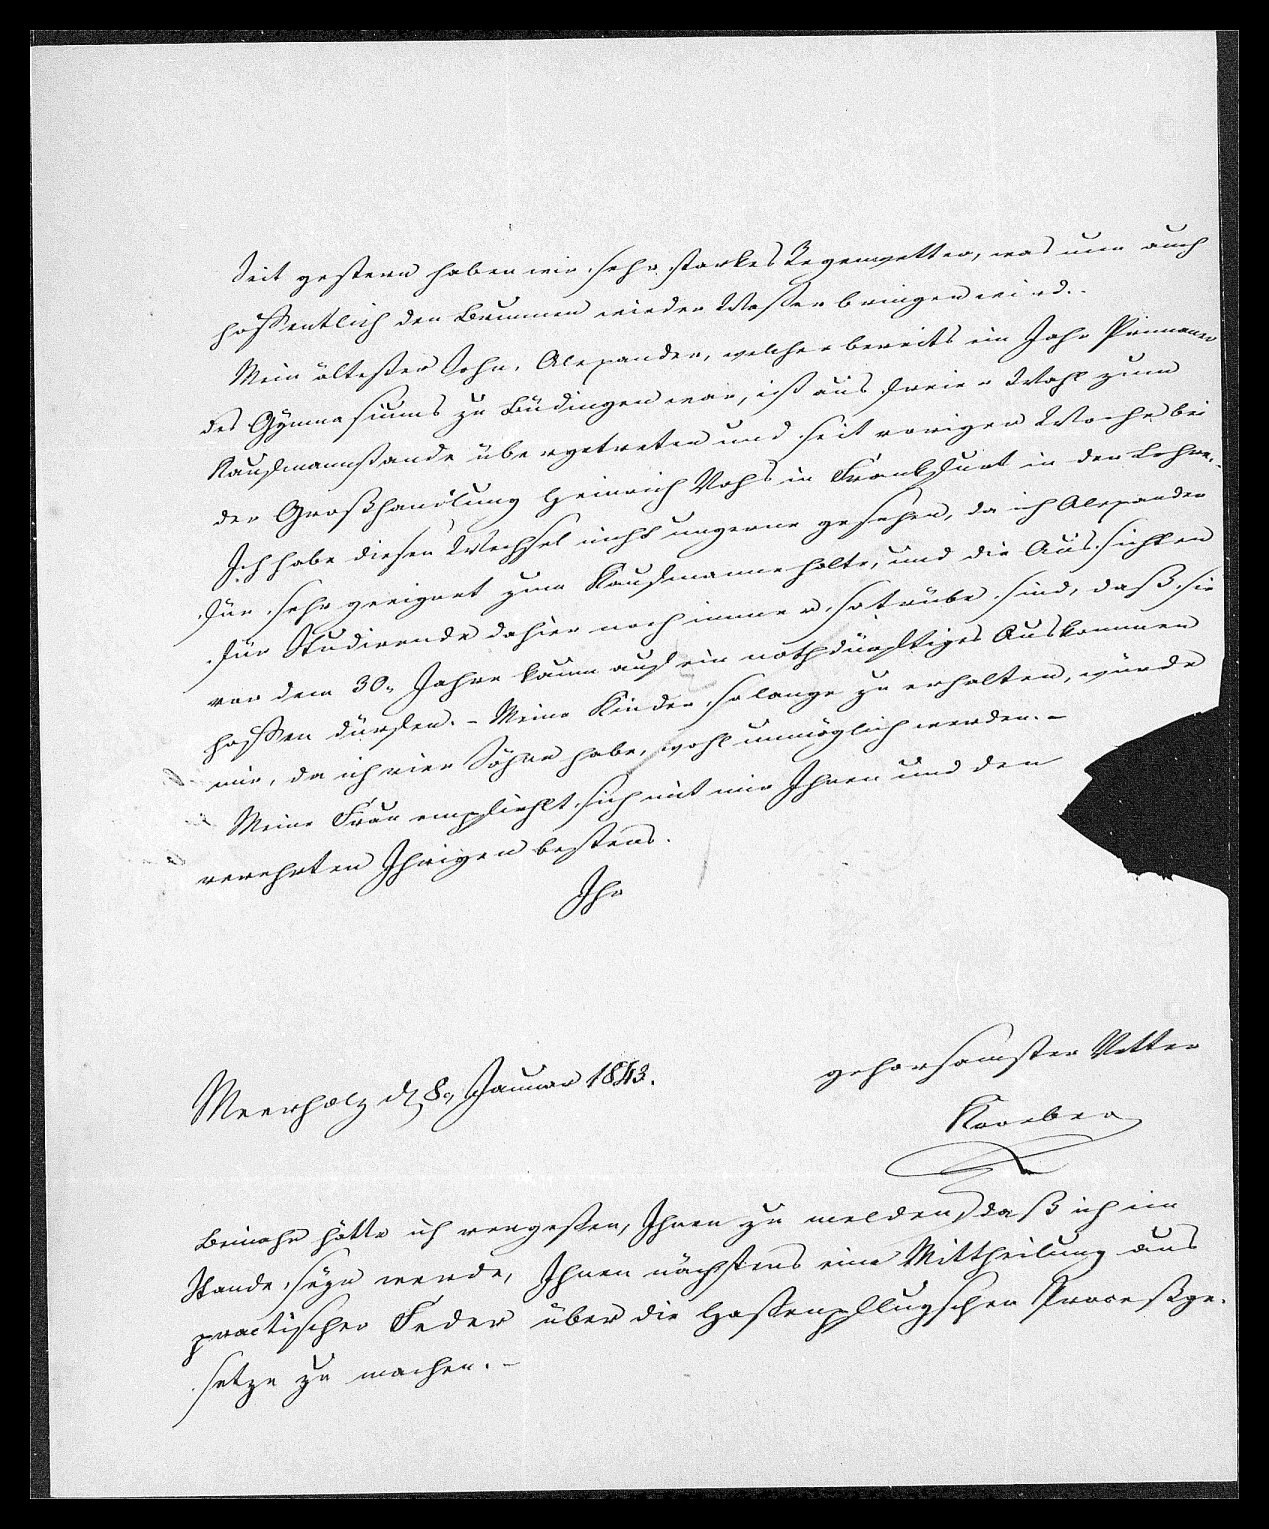 Seit gestern haben wir sehr starkes Regenwetter, was nun auch
hoffentlich den Brunnen wieder Wasser bringen wird.
Mein ältester Sohn, Alexander, welcher bereits ein Jahr Primaner
des Gymnasiums zu Büdingen war, ist aus freier Wahl zum
Kaufmannstande übergetreten und seit voriger Woche bei
der Großhandlung Heinrich Mohs in Frankfurt in der Lehre.
Ich habe diesen Wechsel nicht ungerne gesehen, da ich Alexander
für sehr geeignet zum Kaufmanne halte, und die Aussichten
für Studirende dahier noch immer so trübe sind, daß sie
vor dem 30. Jahre kaum auf ein nothdürftiges Auskommen
hoffen dürfen. - Meine Kinder so lange zu erhalten, würde
mir, da ich vier Söhne habe, wohl unmöglich werden. -
Meine Frau empfiehlt sich mit mir Ihnen und den
verehrten Ihrigen bestens.
Ihr
gehorsamster Vetter
Kroeber
Meerholz d 8. Januar 1843.
Beinahe hätte ich vergeßen, Ihnen zu melden, daß ich im
Stande seyn werde, Ihnen nächstens eine Mittheilung aus
practischer Feder über die Hassenpflugschen Proceßge-
setze zu machen. -